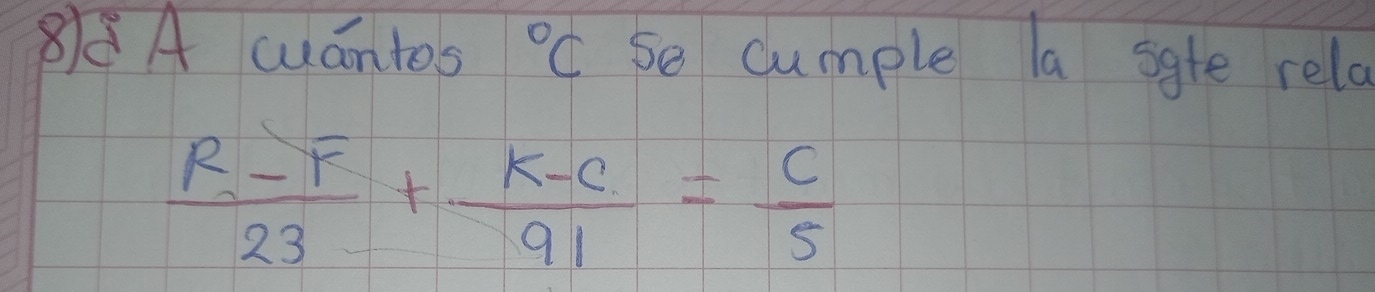 8) ¿A cuántos °C se cumple la sgte rela
R - F / 23 + K - C / 91 = C / 5